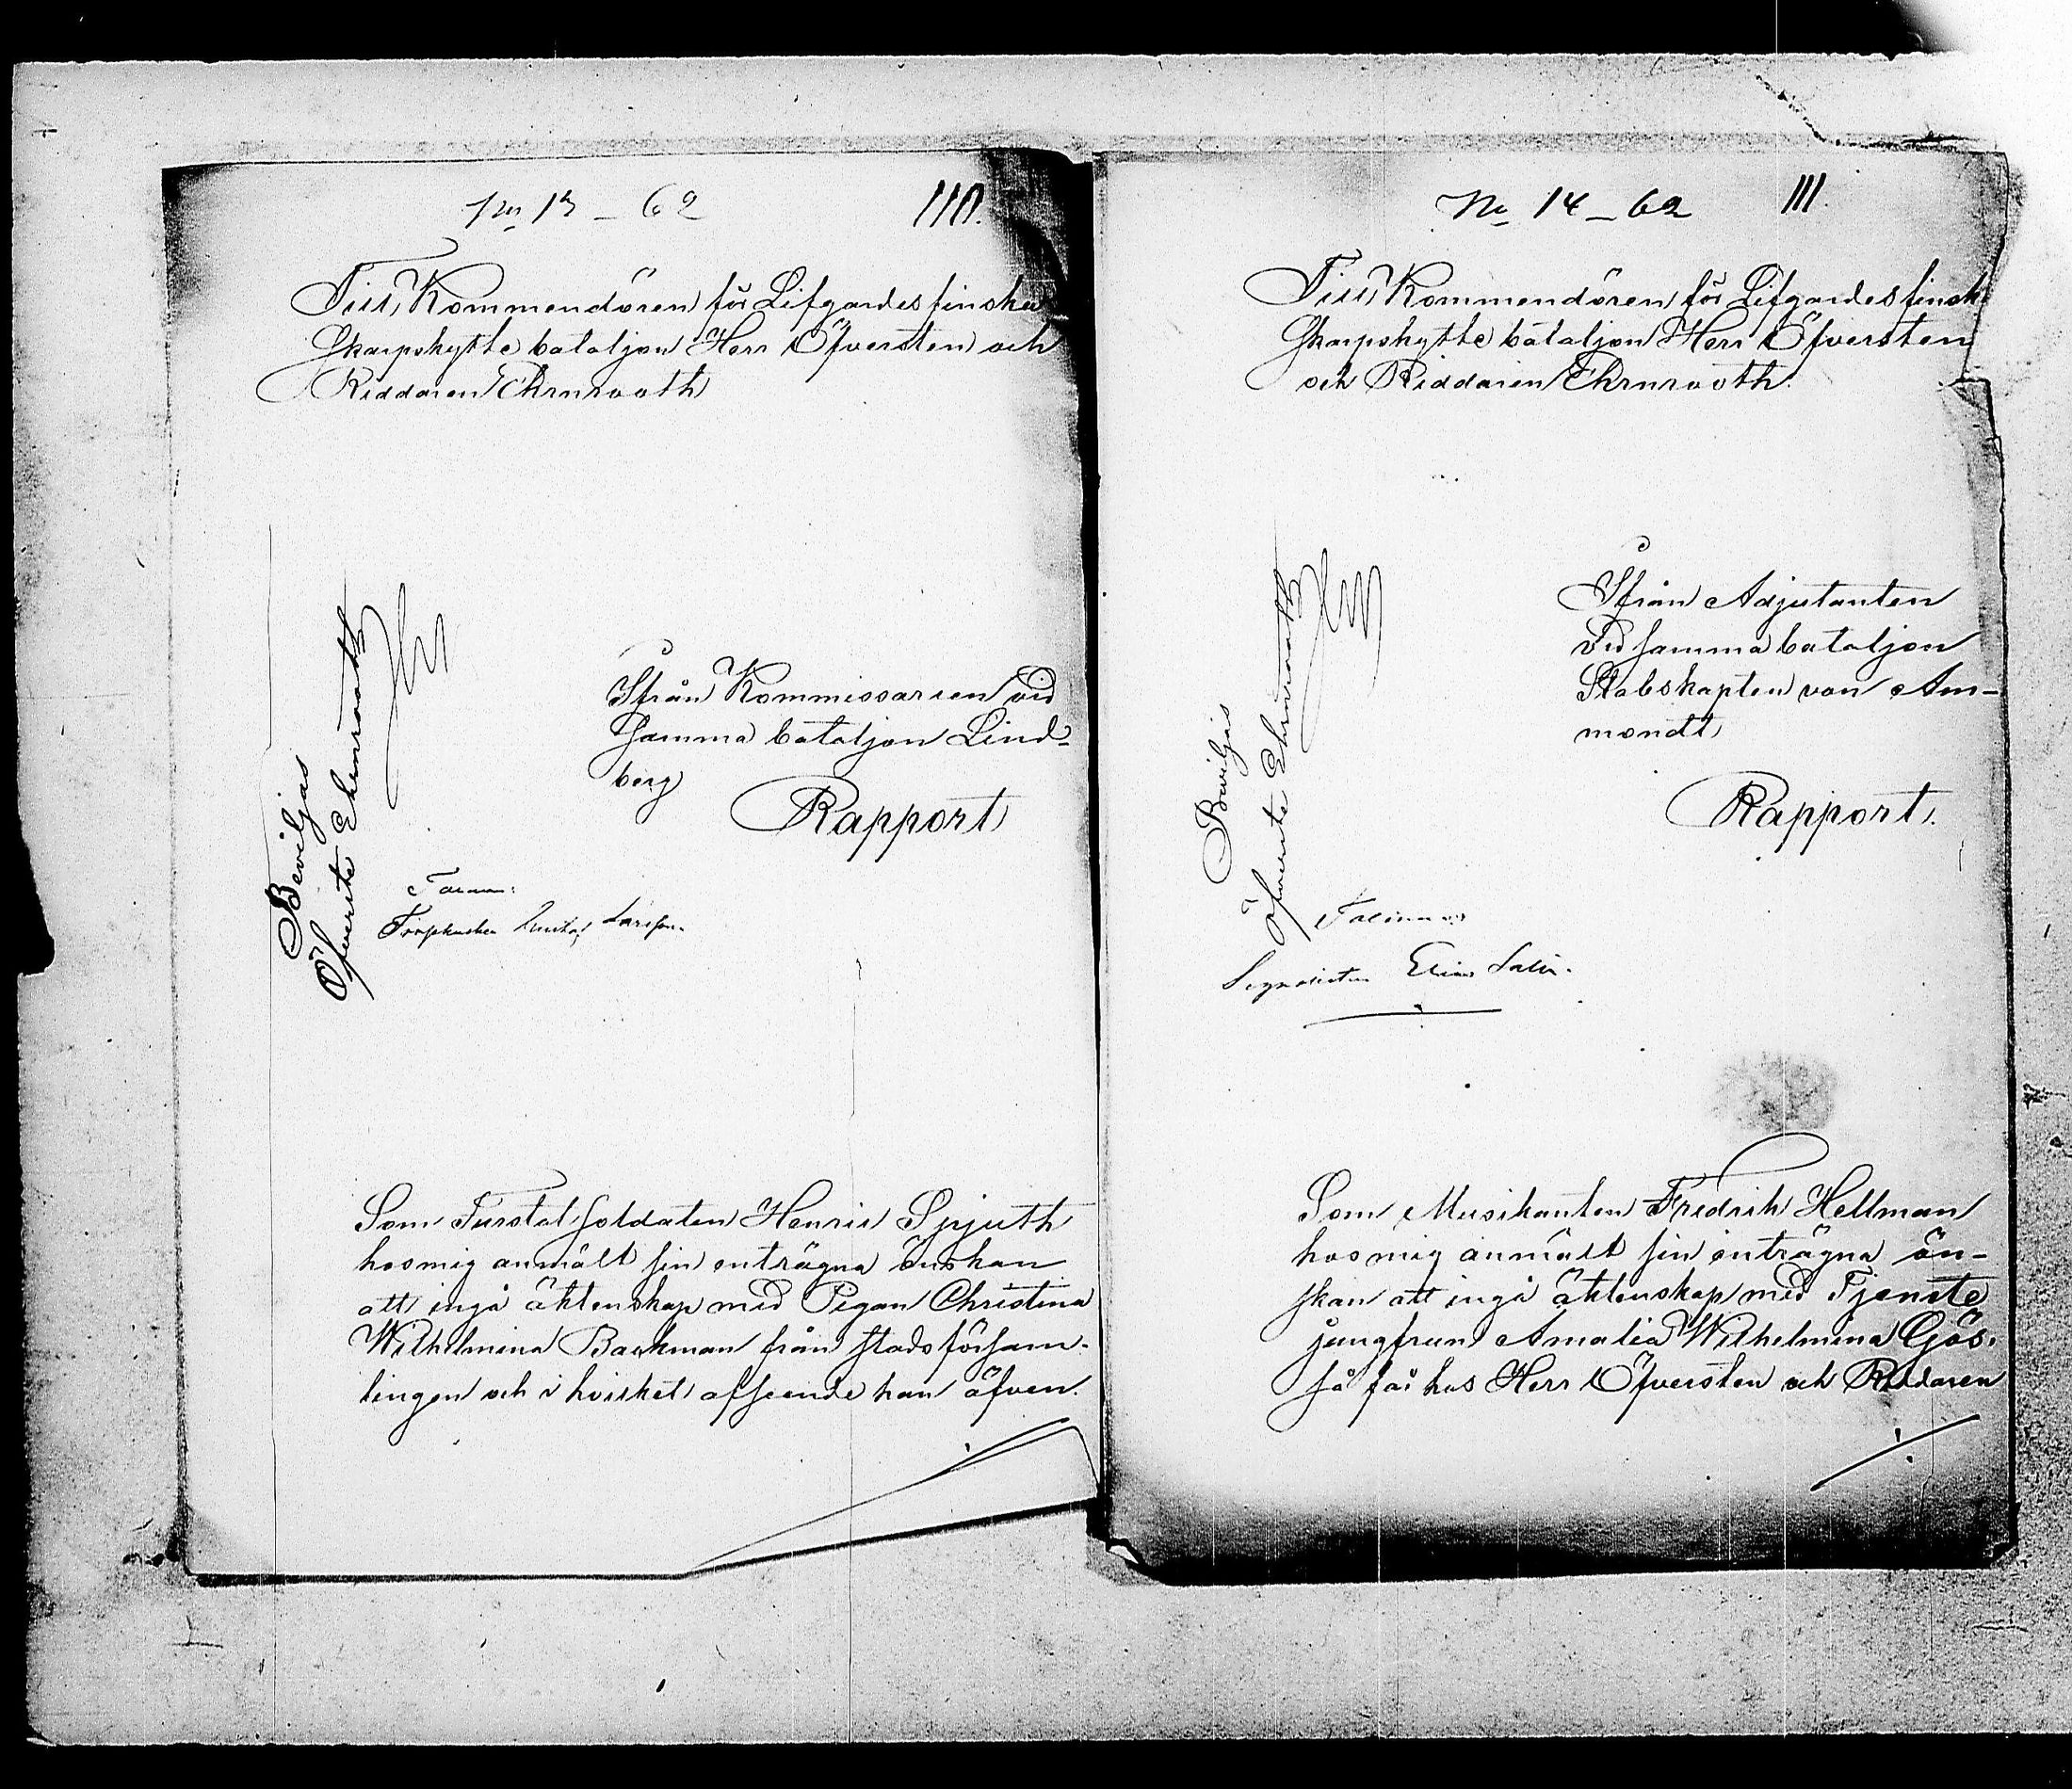 No 13 – 62
110.
Till Kommendören för Lifgardes finska
Skarpskytte bataljon Herr Öfversten och
Riddaren Ehrnrooth
Ifrån Kommissarien vid
Samma bataljon Lind-
berg
Rapport
Beviljas
Öfverste Ehrnrooth
Larsson.
Som Furstat soldaten Henric Spjuth
hos mig anmält sin enträgna önskan
att ingå äktenskap med Pigan Christina
Wilhelmina Backman från stadsförsam-
lingen och i hvilket afseende han äfven
No 14 – 62
111.
Till Kommendören för Lifgardes finska
Skarpskytte bataljon Herr Öfversten
och Riddaren Ehrnrooth.
Ifrån Adjutanten
vid samma bataljon
Stabskapten von Am-
mondt
Rapport.
Beviljas
Öfverste Ehrnrooth
Som Musikanten Fredrik Hellman
hos mig anmält sin enträgna ön-
skan att ingå äktenskap med Tjenste
jungfrun Amalia Wilhelmina Gös.
så får hos Herr Öfversten och Riddaren